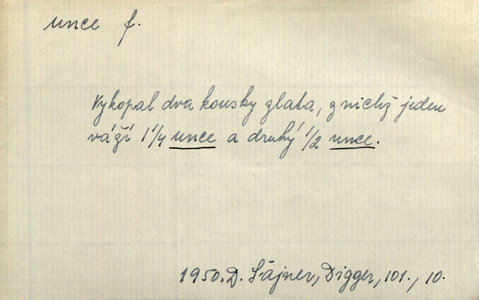 unce f.
Vykopal dva kousky zlata, z nichž jeden
váží 1 1/4 unce a druhý 1/2 unce.
1950. D. Šajner, Digger, 101., 10.